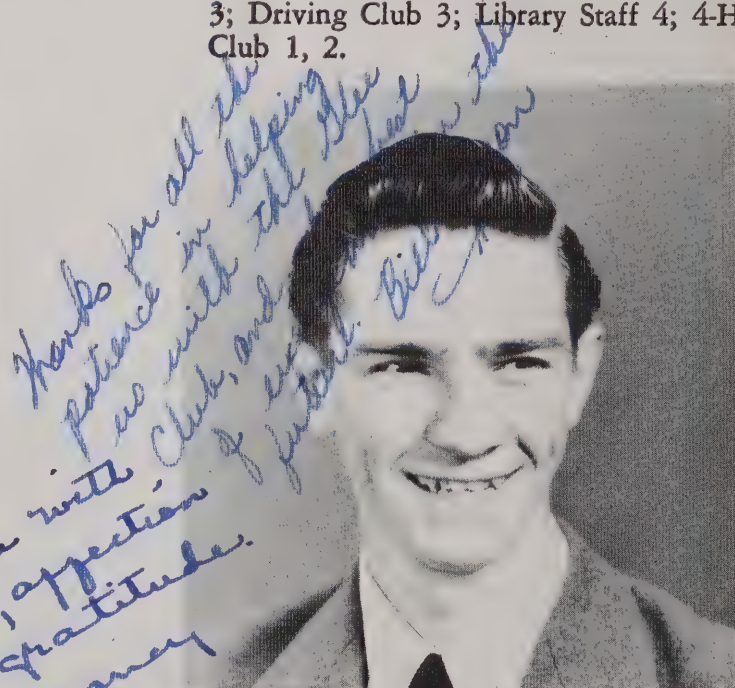 3; Driving Club 3; Library Staff 4; 4-H
Club 1, 2.
Thanks for all the
patience in helping
us with the Glee
Club, and best
of in the
future. Bill
with
, affection
gratitude.